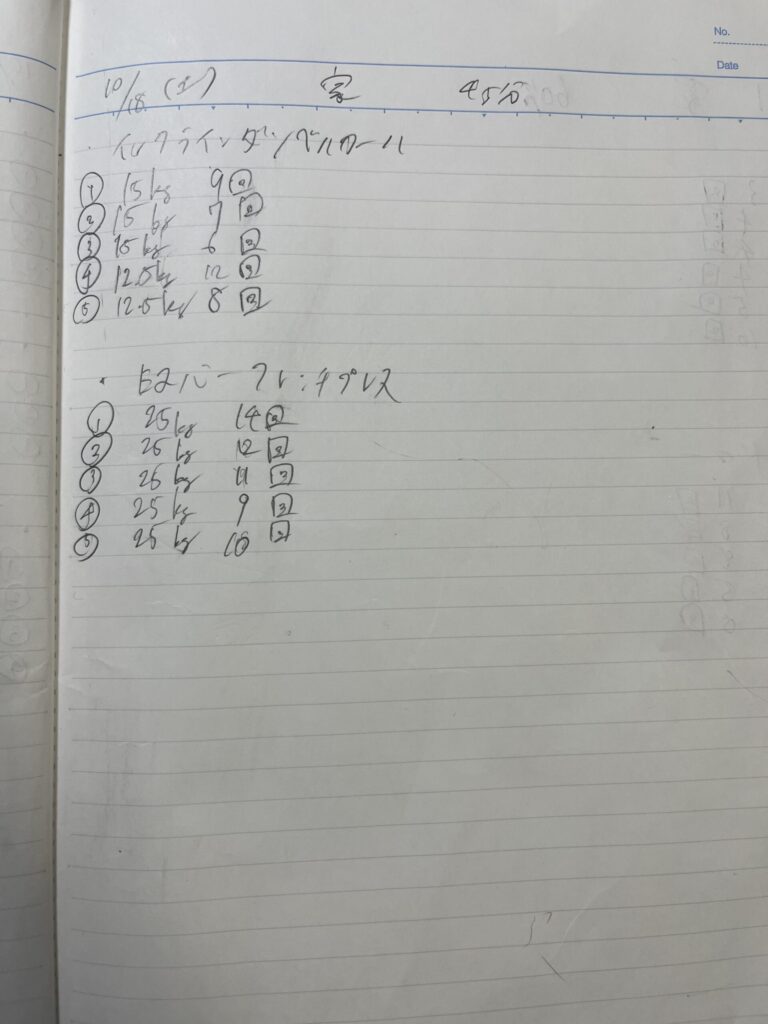 No.
Date
10/18 (土) 宅 45分
・インクラインダンベルカール
① 15kg 9 回
② 15kg 7 回
③ 15kg 6 回
④ 12.5kg 12 回
⑤ 12.5kg 8 回
・EZバーフレンチプレス
① 25kg 14 回
② 25kg 12 回
③ 25kg 11 回
④ 25kg 9 回
⑤ 25kg 10 回